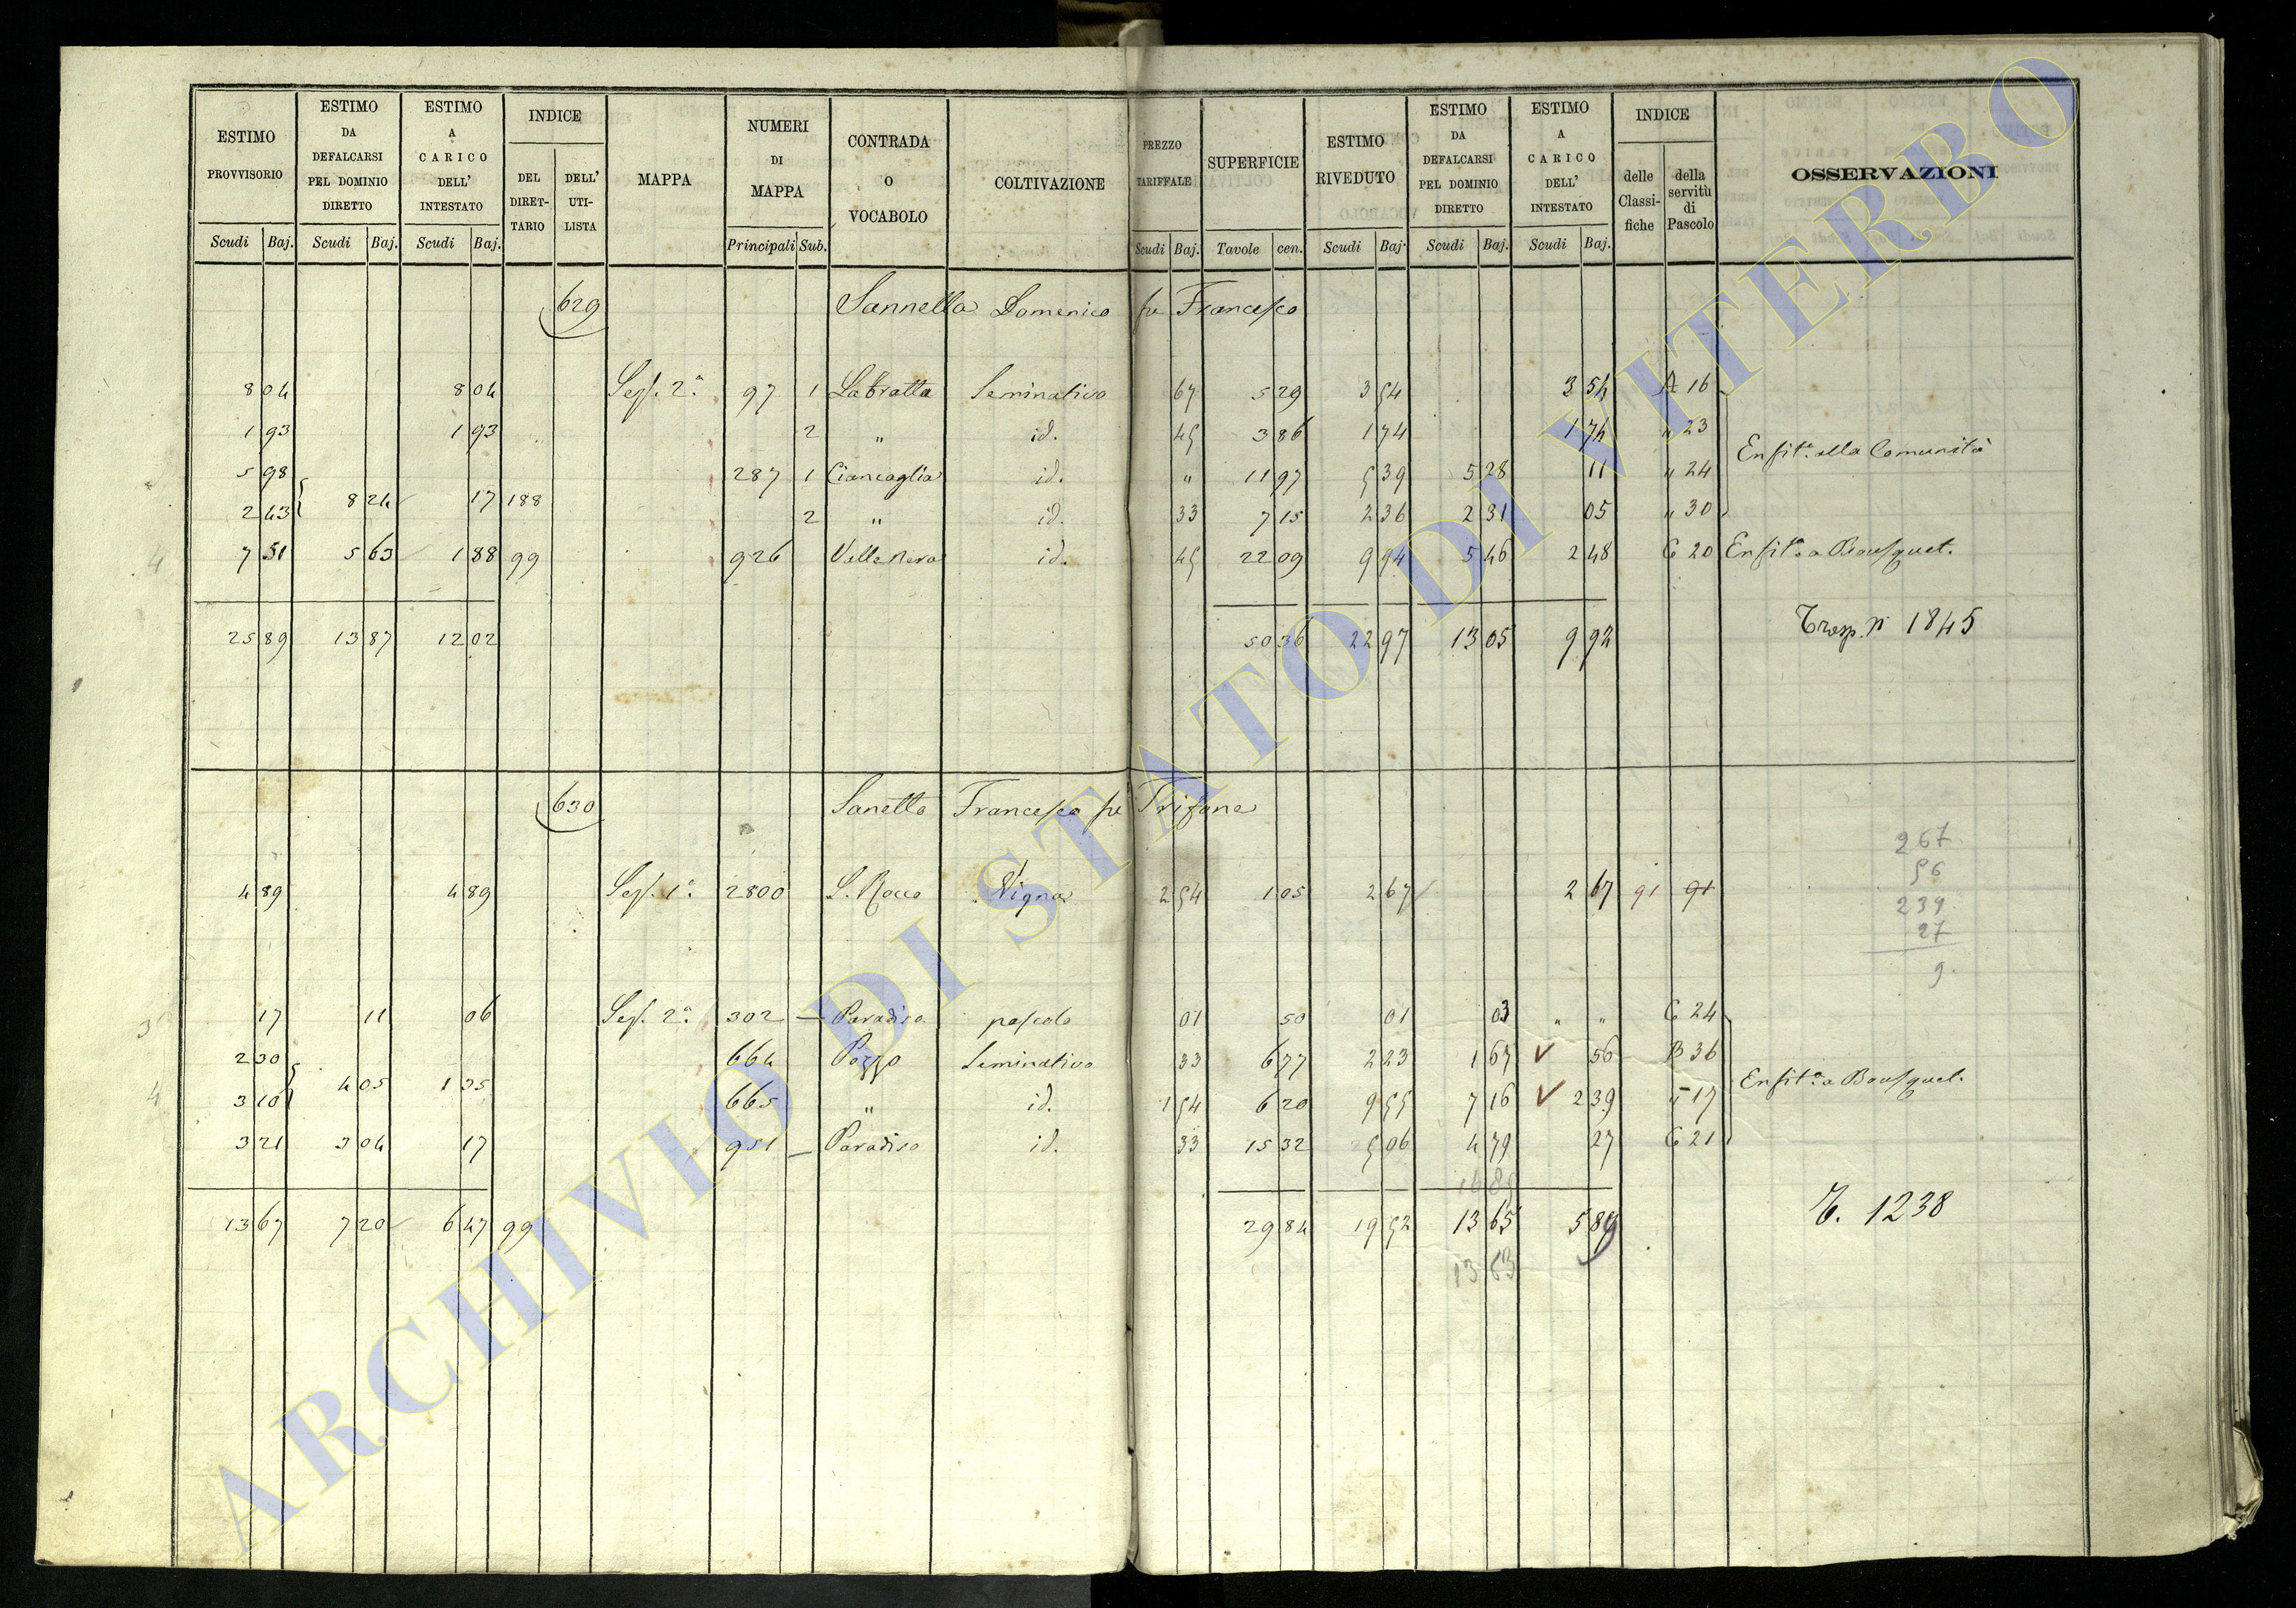 ESTIMO PROVVISORIO | ESTIMO DA DEFALCARSI PEL DOMINIO DIRETTO | ESTIMO A CARICO DELL' INTESTATO | INDICE DEL DIRETTARIO | DELL' UTILISTA | MAPPA | NUMERI DI MAPPA | CONTRADA O VOCABOLO | COLTIVAZIONE | PREZZO TARIFFALE | SUPERFICIE | ESTIMO RIVEDUTO | ESTIMO DA DEFALCARSI PEL DOMINIO DIRETTO | ESTIMO A CARICO DELL' INTESTATO | INDICE delle Classifiche | della servitù di Pascolo | OSSERVAZIONI
Scudi Baj. Scudi Baj. Scudi Baj. Principali Sub. Scudi Baj. Tavole cen. Scudi Baj. Scudi Baj. Scudi Baj.
629 Sannella Domenico fu Francesco
8 04 8 04 Sez. 2a 97 1 La bratta Seminativo 67 5 29 3 54 3 54 A 16
1 93 1 93 2 " id. 45 3 86 1 74 1 74 " 23
Enfita alla Comunità
5 98 287 1 Ciancaglia id. " 11 97 5 39 5 28 11 " 24
8 24 17 188
2 43 2 " id. 33 7 15 2 36 2 31 05 " 30
7 51 5 63 1 88 99 926 Valle nera id. 45 22 09 9 94 5 46 2 48 C 20 Enfita a Bousquet.
25 89 13 87 12 02 50 36 22 97 13 05 9 92
Trasp. N 1845
630 Sanetta Francesco fu Trifone
267
56
4 89 4 89 Sez. 1a 2800 S. Rocco Vigna 2 54 1 05 2 67 2 67 91 91
239
27
9
3 17 11 06 Sez. 2a 302 — Paradiso pascolo 01 50 01 03 " " C 24
2 30 664 Pozzo Seminativo 33 6 77 2 23 1 67 V 56 B 36
4 4 05 1 35 Enfita a Bousquet.
3 10 665 " id. 1 54 6 20 9 55 7 16 V 2 39 " 17
3 21 3 04 17 951 — Paradiso id. 33 15 32 5 06 4 79 27 C 21
13 67 7 20 6 47 99 29 84 19 52 13 65 5 89
T. 1238
13 63
ARCHIVIO DI STATO DI VITERBO